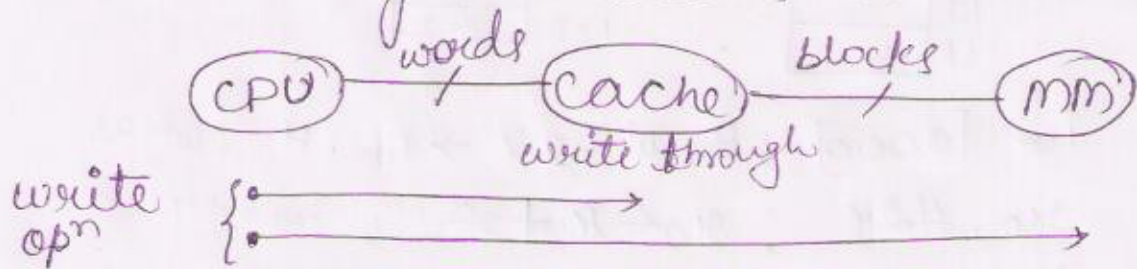 words blocks
CPU Cache MM
write through
write
opn